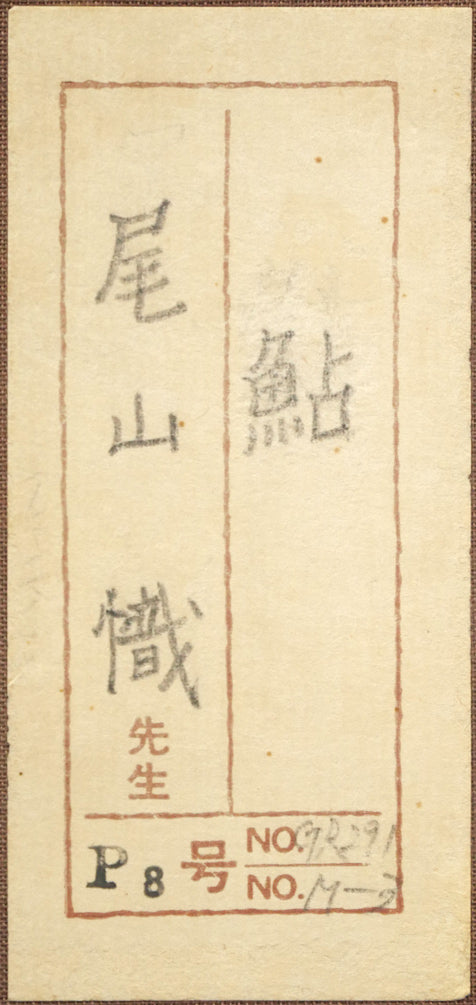 鮎
尾山幟先生
P8号
NO. GR291
NO. M-2